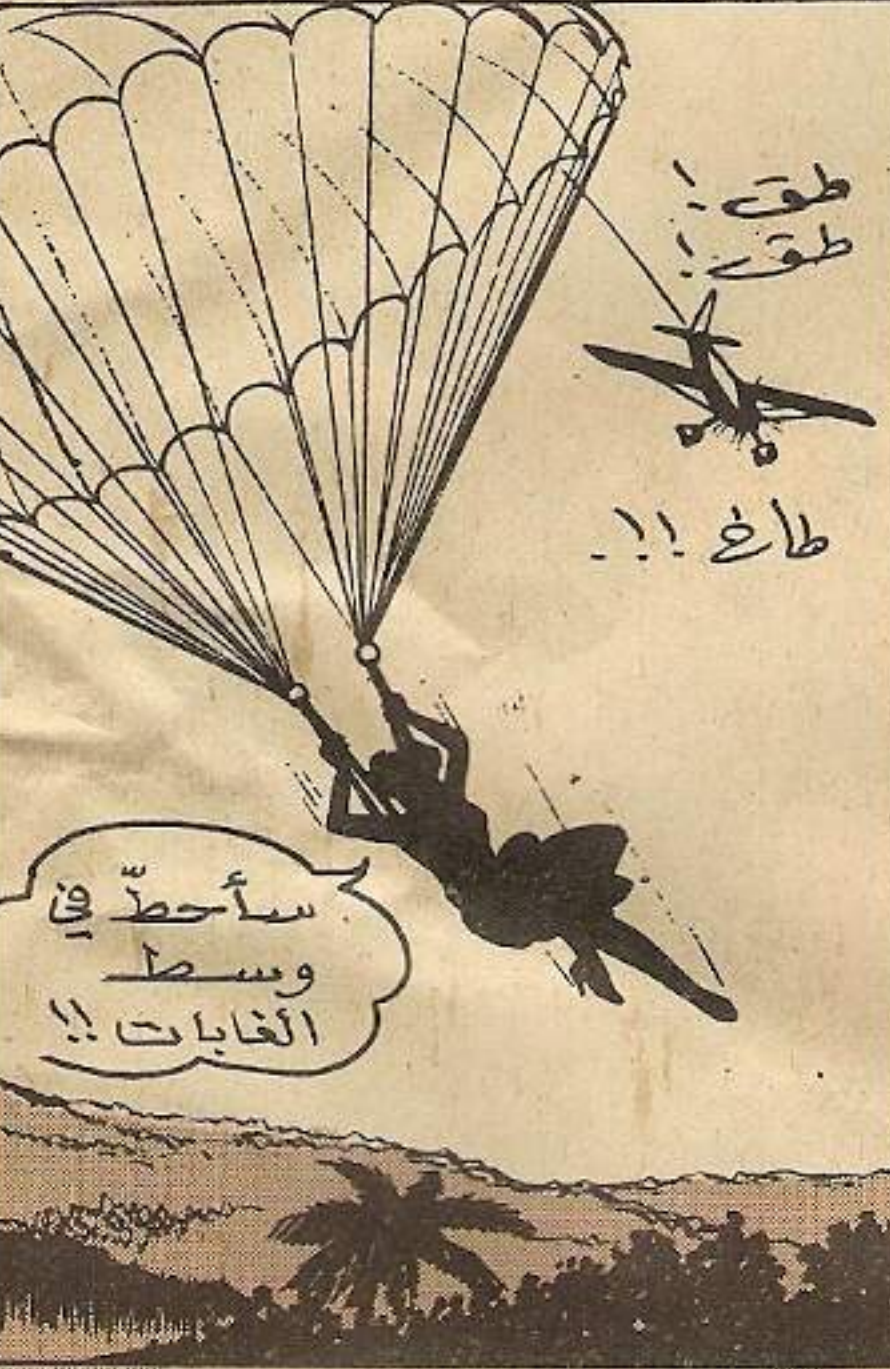 طق!
طق!
طاخ!!!
سأحطّ في
وسط
الغابات!!